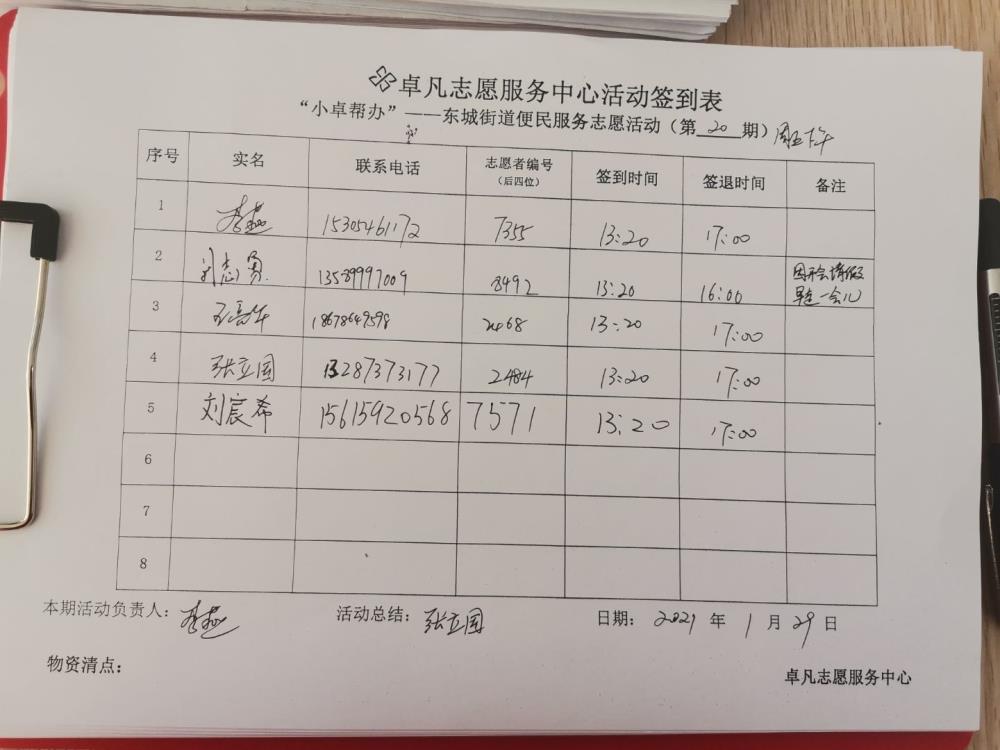 卓凡志愿服务中心活动签到表
“小卓帮办”——东城街道便民服务志愿活动（第 20 期）周五下午
序号 实名 联系电话 志愿者编号（后四位） 签到时间 签退时间 备注
1 李燕 15305461172 7355 13:20 17:00
2 刘志勇 13589997009 8492 13:20 16:00 因开会请假早走一会儿
3 18678649598 2468 13:20 17:00
4 张立国 13287373177 2484 13:20 17:00
5 刘宸希 15615920568 7571 13:20 17:00
6
7
8
本期活动负责人：李燕 活动总结：张立国 日期：2021 年 1 月 29 日
物资清点：
卓凡志愿服务中心